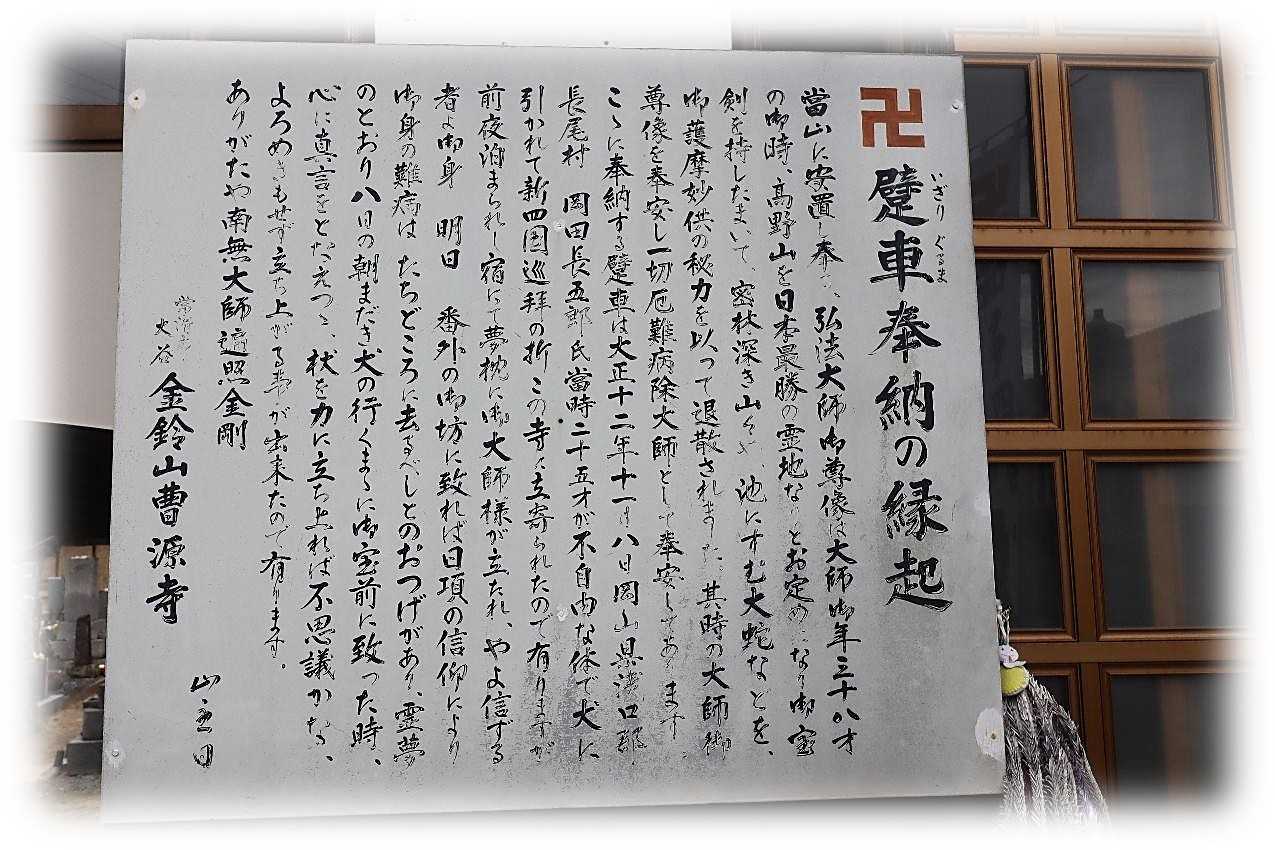 卍 躄車奉納の縁起
いざり ぐるま
當山に安置し奉る、弘法大師御尊像は大師御年三十八才
の御時、高野山を日本最勝の霊地なりとお定めになり御宝
剣を持したまいて、密林深き山々や、池にすむ大蛇などを、
御護摩妙供の秘力を以って退散されました、其時の大師御
尊像を奉安し一切厄難病除大師として奉安してあります
こゝに奉納する躄車は大正十二年十一月八日岡山県浅口郡
長尾村 岡田長五郎氏當時二十五才が不自由な体で犬に
引かれて新四国巡拝の折この寺に立寄られたので有りますが
前夜泊まられし宿にて夢枕に御大師様が立たれ、やよ信ずる
者よ御身 明日 番外の御坊に致れば日項の信仰により
御身の難病は たちどころに去るべしとのおつげがあり、霊夢
のとおり八日の朝まだき犬の行くまゝに御宝前に致った時、
心に真言をとなえつゝ、杖を力に立ち上れば不思議かな、
よろめきもせず立ち上がる事が出来たので有ります。
ありがたや南無大師遍照金剛
常滑市
大谷 金鈴山曹源寺
山主曰